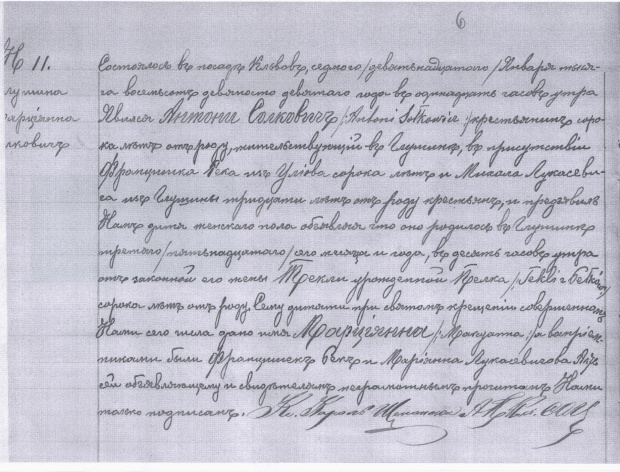 6
N 11.
Состоялось въ посадѣ Кльвовѣ, седмого /девятьнадцатого/ Января тыся-
ча восемьсотъ девяносто девятаго года въ одиннадцать часовъ утра
Явился Антони Солковичъ /:Antoni Sołkowicz:/ крестьянинъ соро-
ка лѣтъ отъ роду, жительствующій въ Глушинѣ, въ присутствіи
Францишка Бека изъ Улюва сорока лѣтъ и Михала Лукасеви-
ча изъ Глушины тридцати лѣтъ отъ роду крестьянъ, и предъявилъ
Намъ дитя женскаго пола объявляя что оно родилось въ Глушинѣ
третьяго /пятьнадцатаго/ сего мѣсяца и года, въ десять часовъ утра
отъ законной его жены Текли урожденной /:Tekli z
сорока лѣтъ отъ роду. Сему дитяти при святомъ крещеніи совершенномъ
Нами сего числа дано имя Марціянна /:Маryanna:/ а воспріем-
никами были Францишекъ Бекъ и Маріянна Лукасевичова. Актъ
сей объявляющему и свидѣтелямъ неграмотнымъ прочитанъ, Нами
только подписанъ. Кс. Кароль